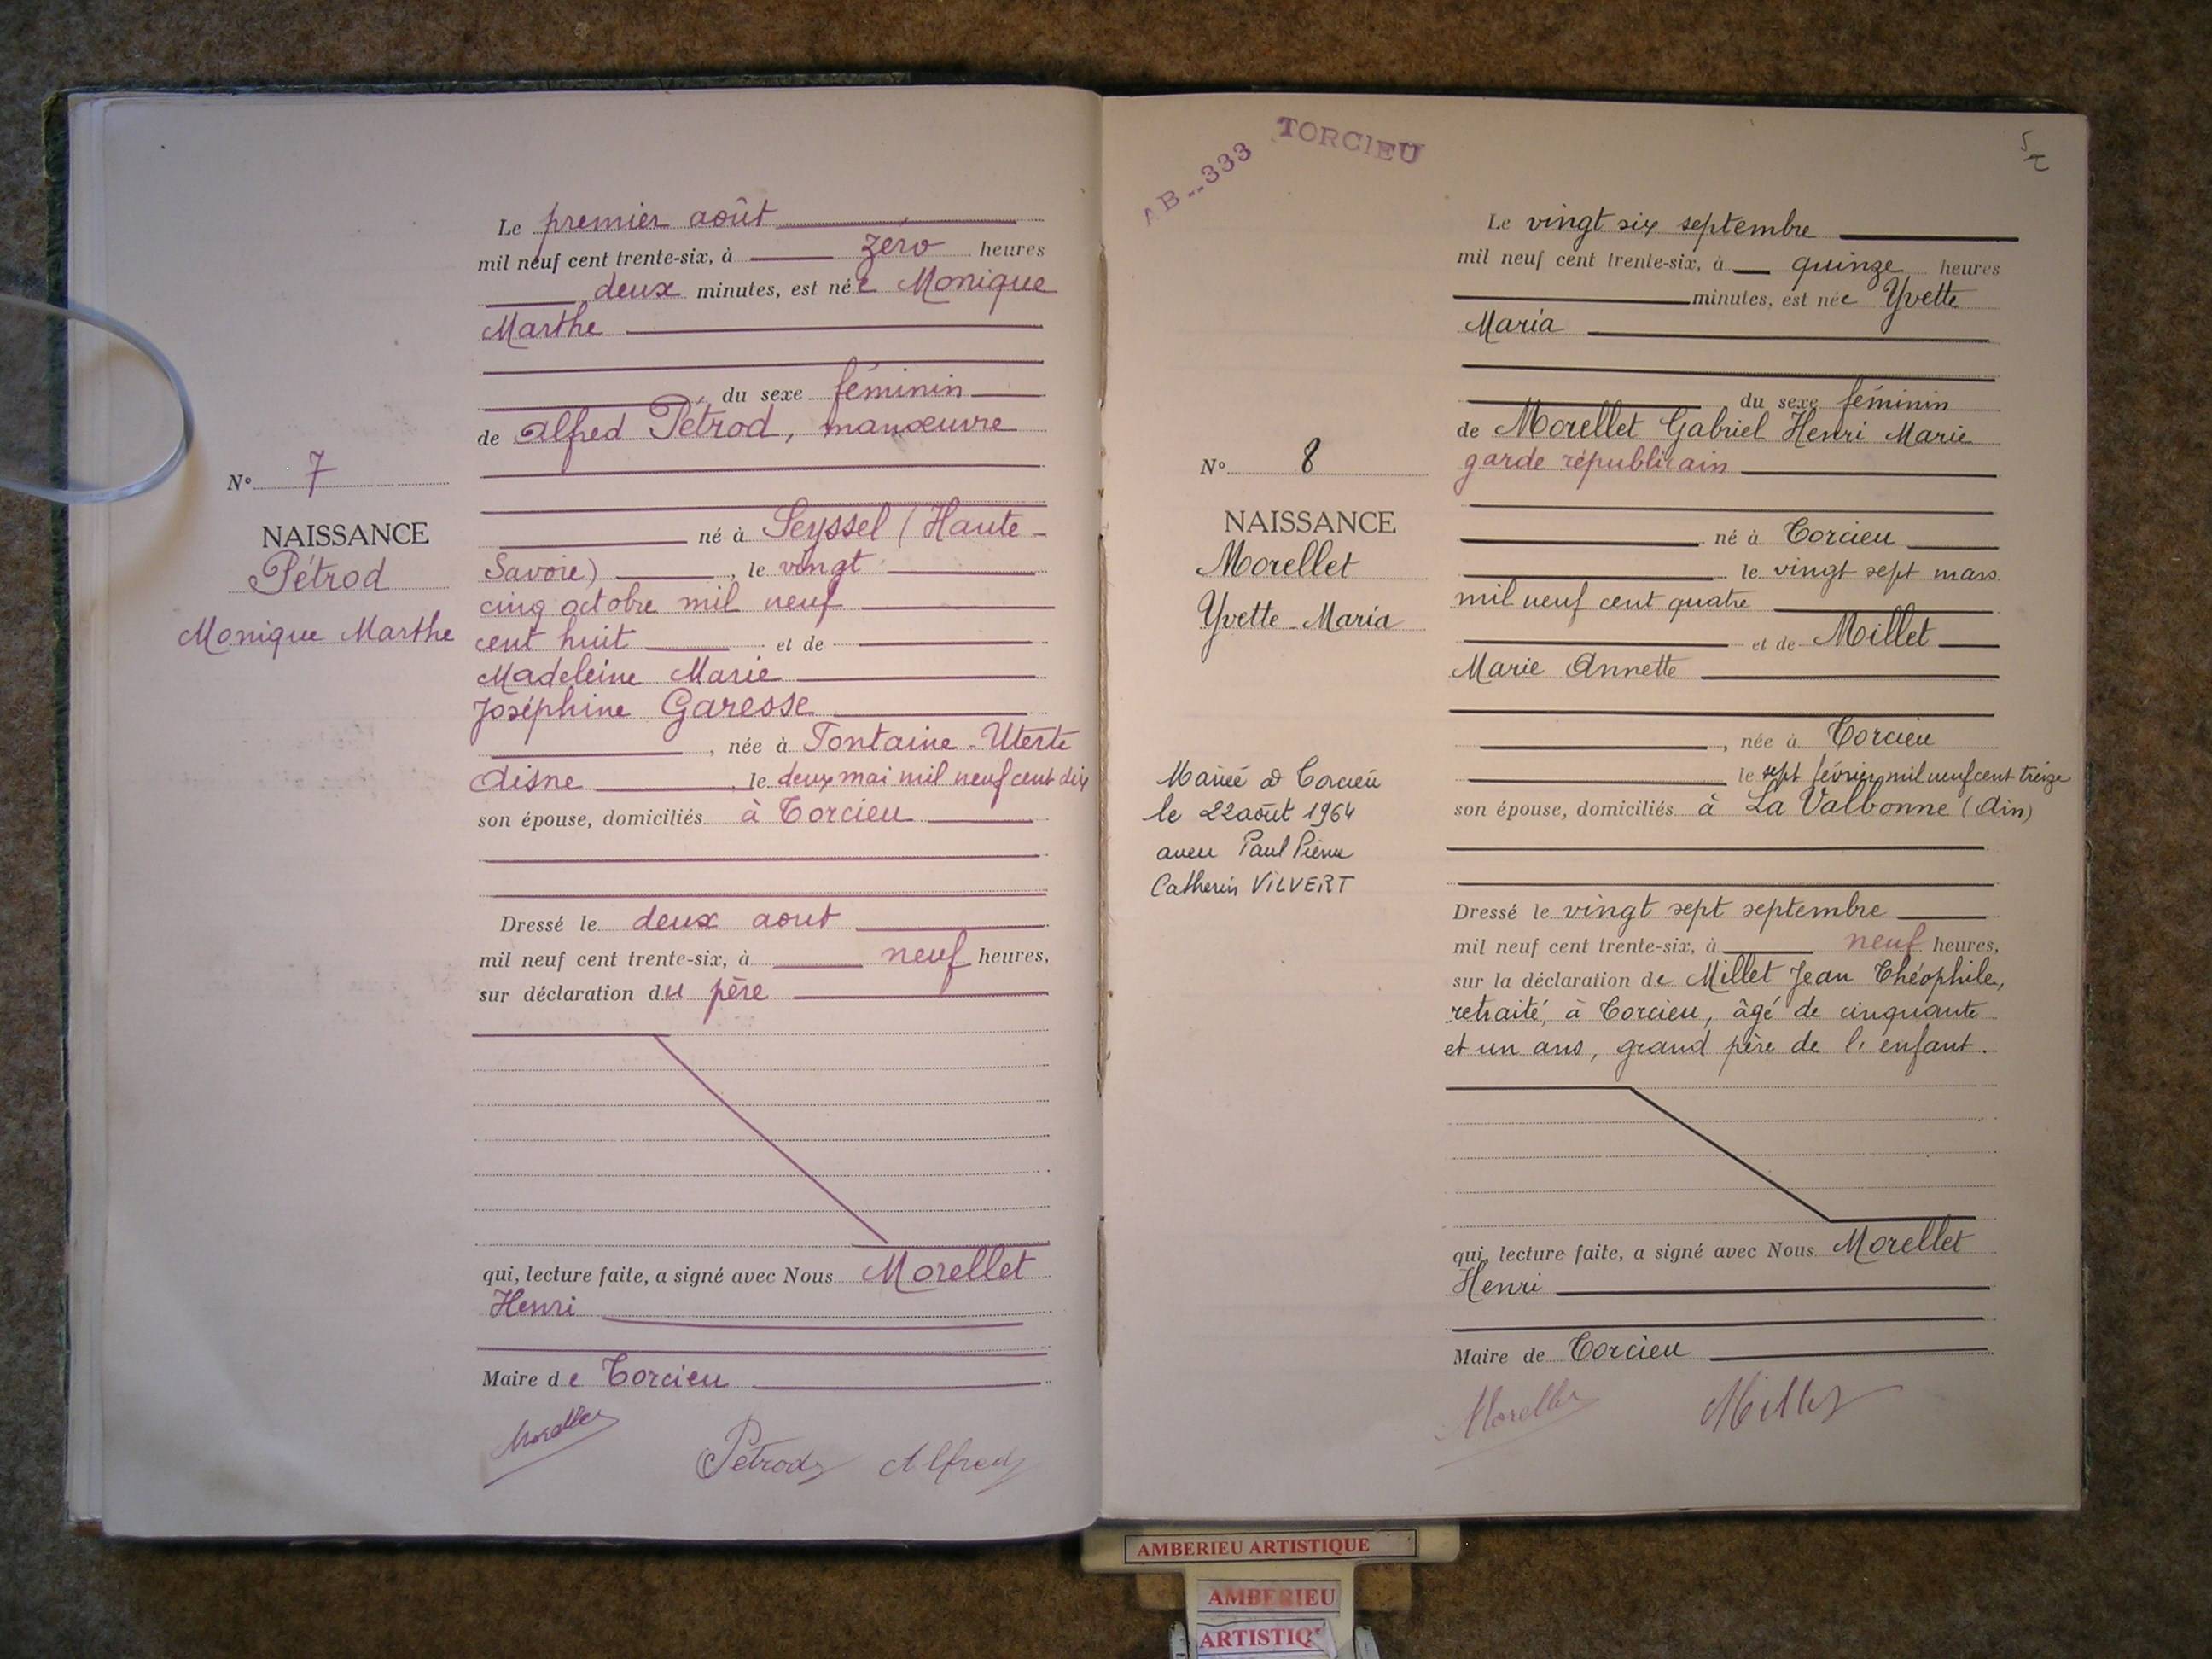 Le premier août
mil neuf cent trente-six, à zéro heures
deux minutes, est née Monique
Marthe
, du sexe féminin
de Alfred Pétrod, manœuvre
N° 7
NAISSANCE
Pétrod
Monique Marthe
né à Seyssel (Haute-
Savoie) , le vingt
cinq octobre mil neuf
cent huit et de
Madeleine Marie
Joséphine Garesse
, née à Fontaine-Uterte
Aisne , le deux mai mil neuf cent dix
son épouse, domiciliés à Torcieu
Dressé le deux aout
mil neuf cent trente-six, à neuf heures,
sur déclaration du père
qui, lecture faite, a signé avec Nous Morellet
Henri
Maire de Torcieu
Morellet
Pétrod Alfred
AB--333 TORCIEU
Le vingt six septembre
mil neuf cent trente-six, à quinze heures
minutes, est née Yvette
Maria
du sexe féminin
de Morellet Gabriel Henri Marie
garde républicain
N° 8
NAISSANCE
Morellet
Yvette-Maria
Mariée à Torcieu
le 22 août 1964
avec Paul Pierre
Catherin VILVERT
né à Torcieu
le vingt sept mars
mil neuf cent quatre
et de Millet
Marie Annette
, née à Torcieu
le sept février mil neuf cent treize
son épouse, domiciliés à La Valbonne (Ain)
Dressé le vingt sept septembre
mil neuf cent trente-six, à neuf heures,
sur la déclaration de Millet Jean Théophile,
retraité, à Torcieu, âgé de cinquante
et un ans, grand père de l'enfant.
qui, lecture faite, a signé avec Nous Morellet
Henri
Maire de Torcieu
Morellet
Millet
AMBERIEU ARTISTIQUE
AMBERIEU
ARTISTIQ